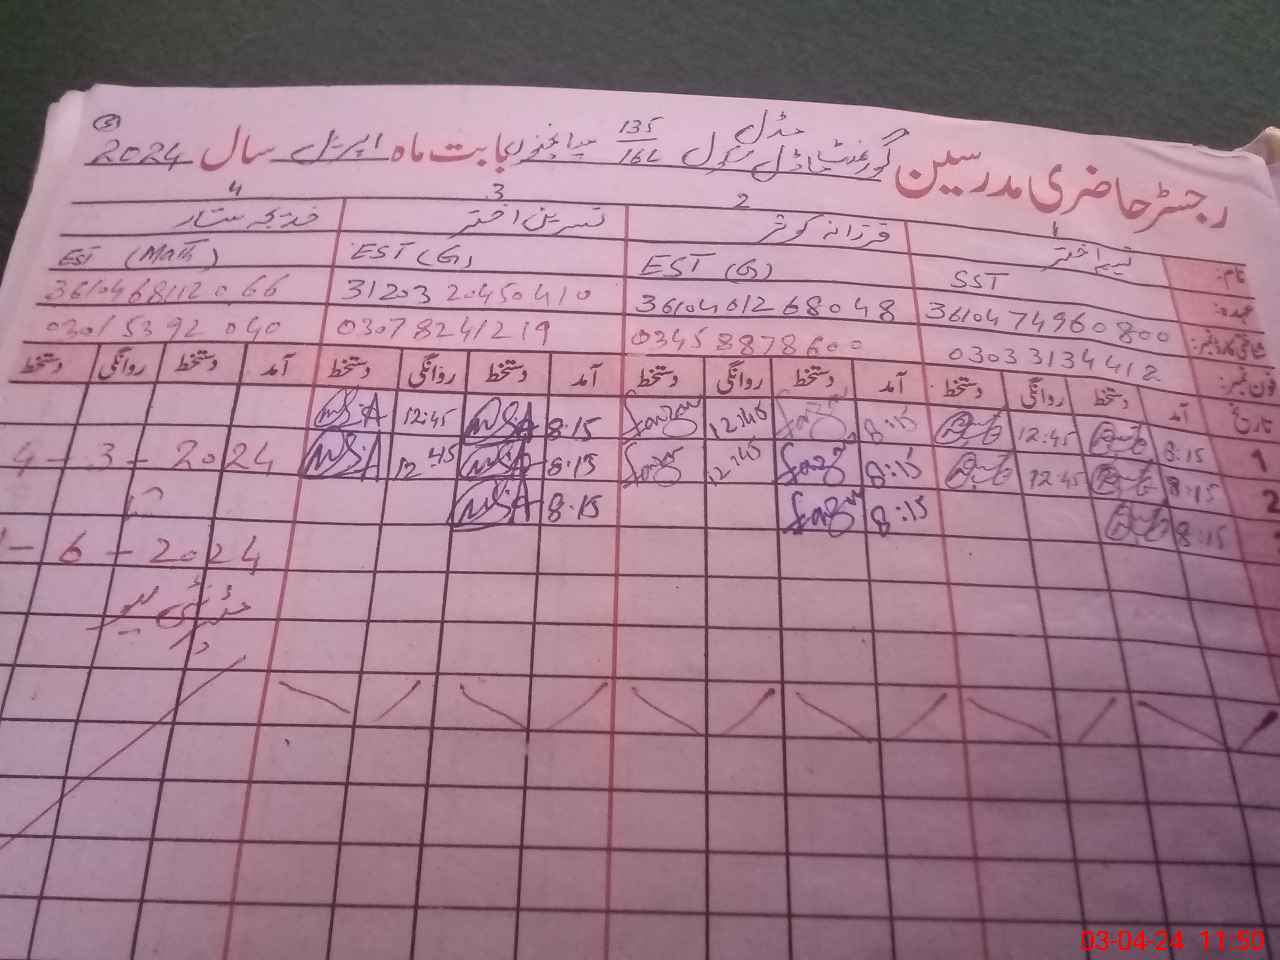 رجسٹر حاضری مدرسین گورنمنٹ ماڈل مڈل سکول 135/16L میانچنوں بابت ماہ اپریل سال 2024
1 2 3 4
نام: اختر فرزانہ کوثر نسرین اختر خدیجہ ستار
عہدہ: SST EST (G) EST (G) EST (Math)
شناختی کارڈ نمبر: 3610474960800 3610401268048 3120320450410 3610468112066
فون نمبر: 03033134412 03458878600 03078241219 03015392040
تاریخ آمد دستخط روانگی دستخط آمد دستخط روانگی دستخط آمد دستخط روانگی دستخط آمد دستخط روانگی دستخط
1 8:15 12:45 8:15 12:45 8:15 12:45
2 8:15 12:45 8:15 12:45 8:15 12:45 4-3-2024
8:15 8:15 8:15
6-2024
03-04-24 11:50